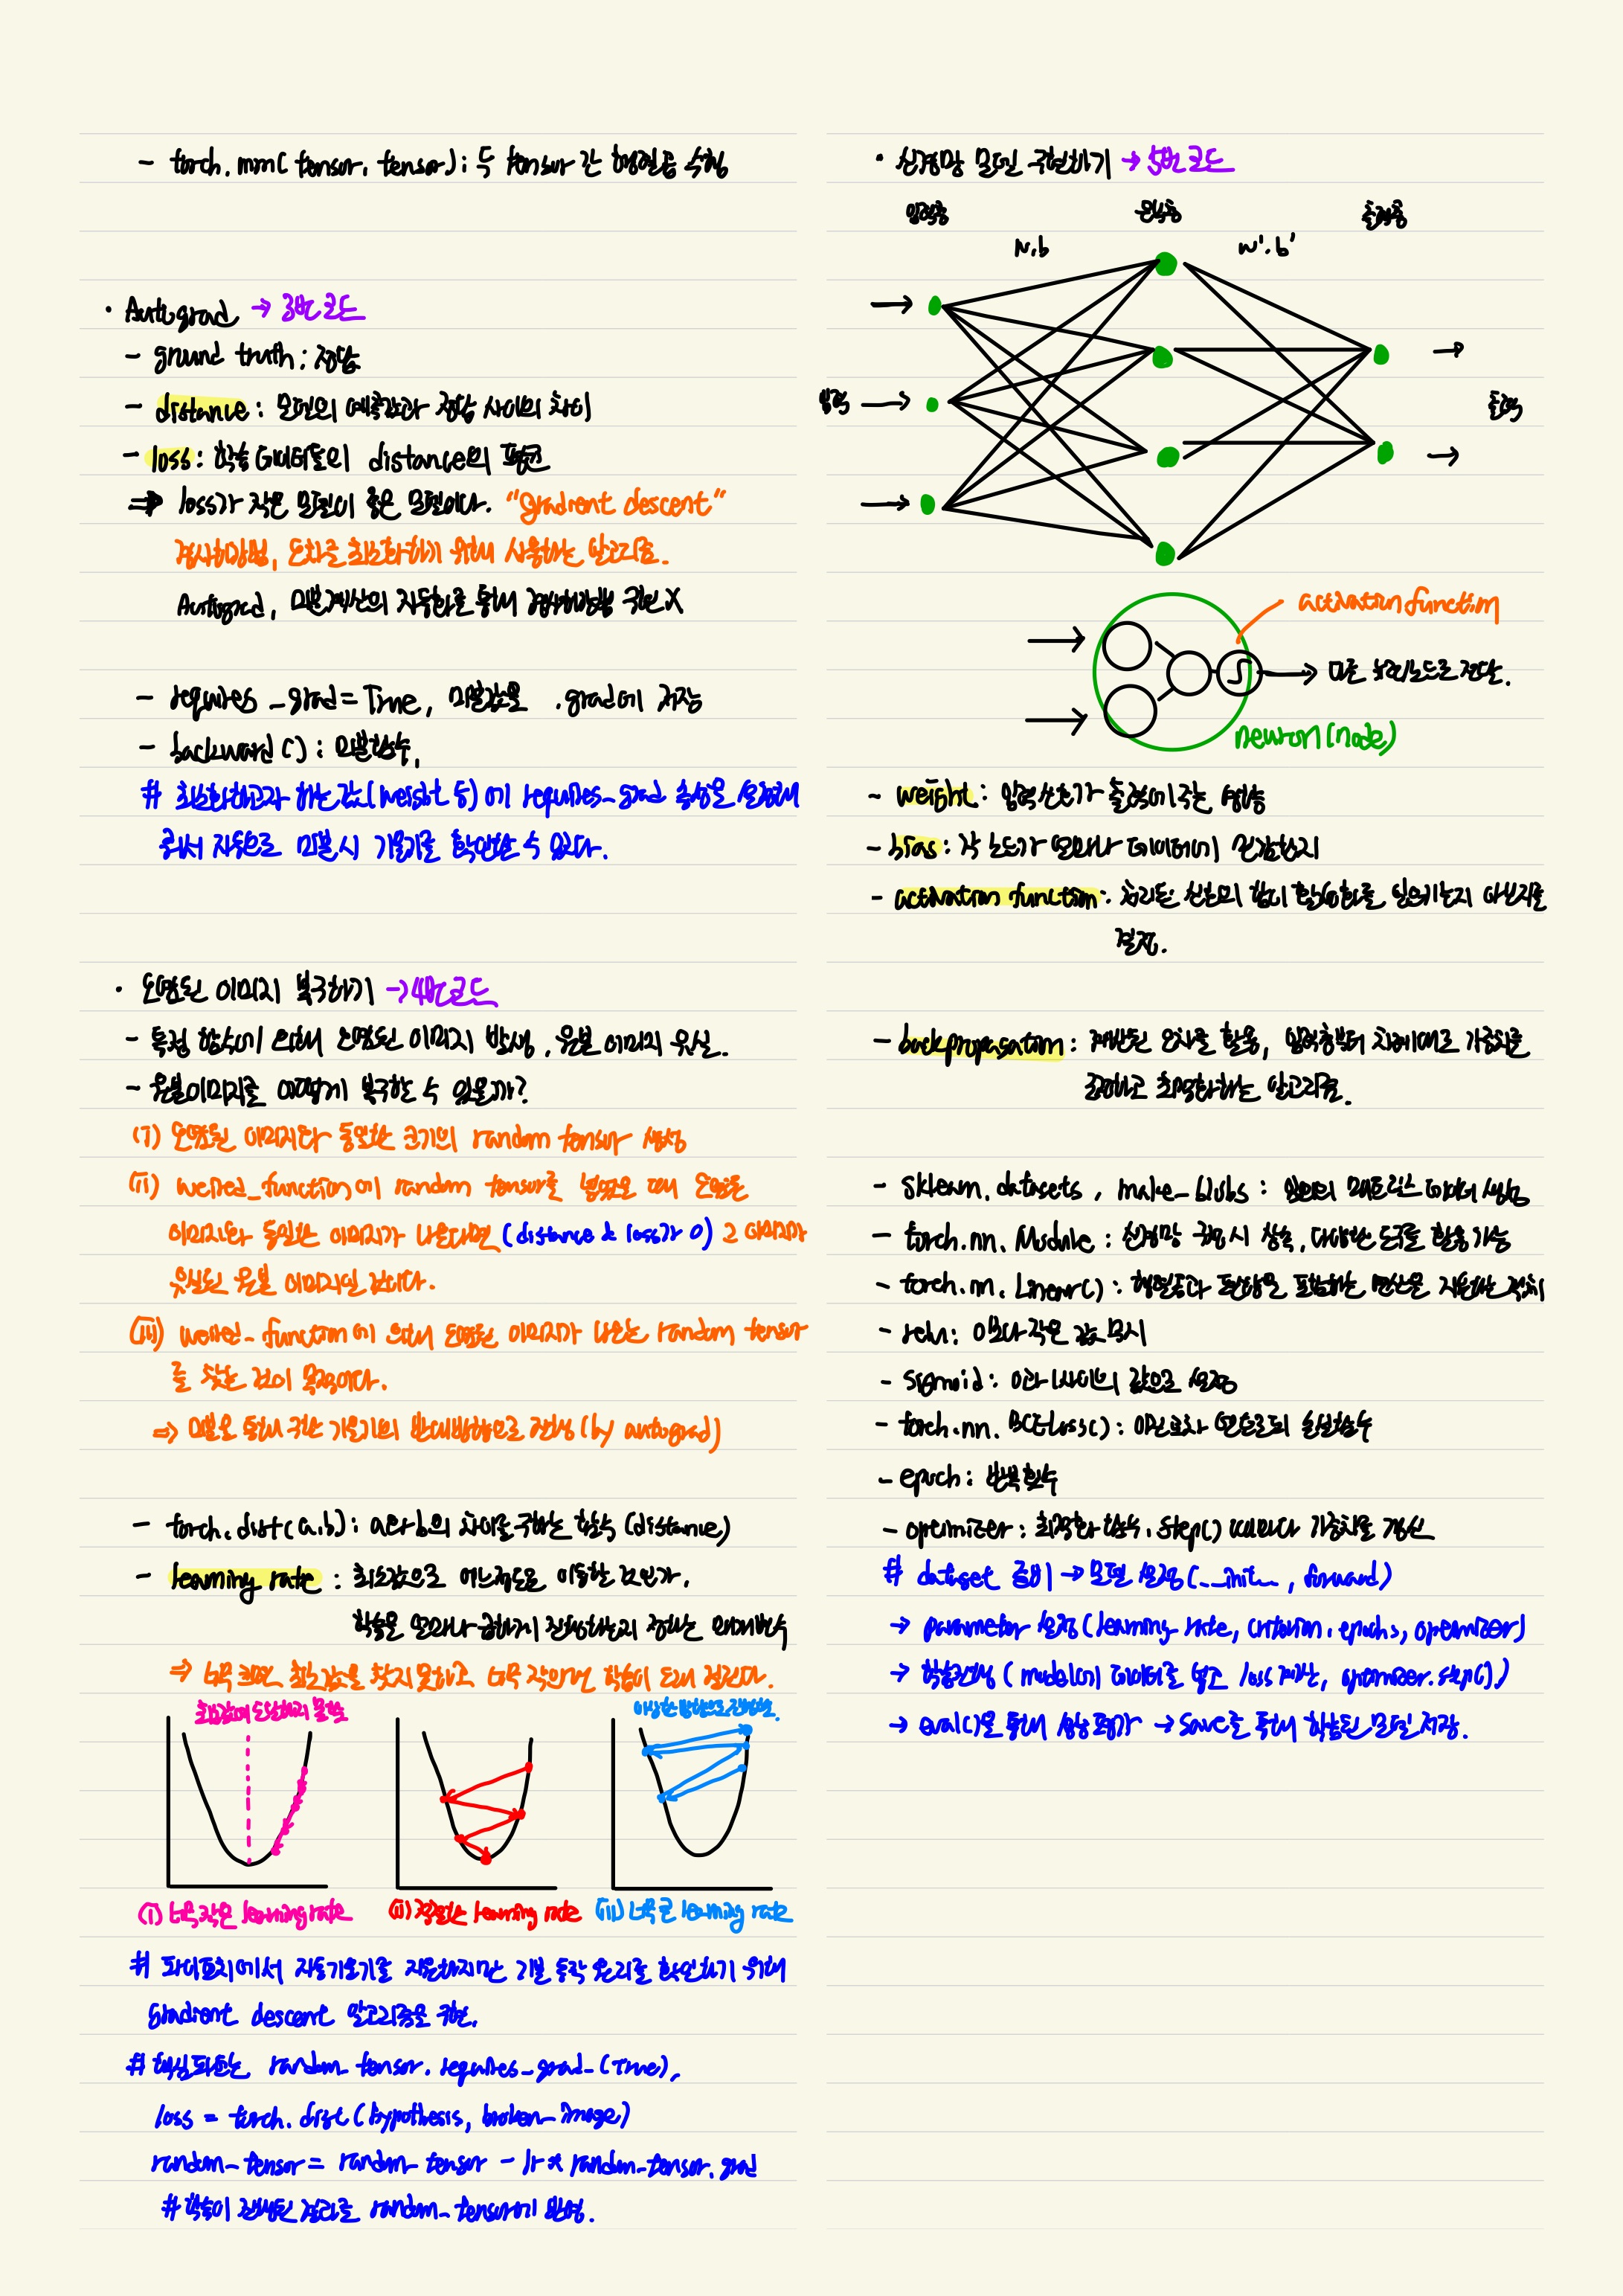 - torch.mm(tensor, tensor) : 두 tensor 간 행렬곱 수행
· Autograd → 3번 코드
- ground truth : 정답
- distance : 모델의 예측값과 정답 사이의 차이
- loss : 학습 데이터들의 distance의 평균
⇒ loss가 작은 모델이 좋은 모델이다. "gradient descent"
경사하강법, 오차를 최소화하기 위해 사용하는 알고리즘.
Autograd, 미분계산의 자동화를 통해 경사하강법 구현 X
- requires_grad = True, 미분값을 .grad에 저장
- backward() : 미분함수,
# 최소화하고자 하는 값(weight 등)에 requires_grad 속성을 설정해
줘서 자동으로 미분시 기울기를 확인할 수 있다.
· 오염된 이미지 복구하기 → 4번 코드
- 특정 함수에 의해 오염된 이미지 발생, 원본 이미지 유실.
- 원본이미지를 어떻게 복구할 수 있을까?
(i) 오염된 이미지와 동일한 크기의 random tensor 생성
(ii) weired_function에 random tensor를 넣었을 때 오염된
이미지와 동일한 이미지가 나온다면 (distance & loss가 0) 그 이미지가
유실된 원본 이미지일 것이다.
(iii) weired_function에 의해 오염된 이미지가 나오는 random tensor
를 찾는 것이 목적이다.
⇒ 미분을 통해 구한 기울기의 반대방향으로 진행 (by autograd)
- torch.dist(a.b) : a와 b의 차이를 구하는 함수 (distance)
- learning rate : 최소값으로 어느정도로 이동할 것인가,
학습을 얼마나 급하게 진행하는지 정하는 매개변수
⇒ 너무 크면 최소값을 찾지 못하고 너무 작으면 학습이 오래 걸린다.
최소값에 도달하지 못함
이상한 방향으로 진행됨.
(i) 너무 작은 learning rate
(ii) 적절한 learning rate
(iii) 너무 큰 learning rate
# 파이토치에서 자동기울기를 지원하지만 기본 동작 원리를 확인하기 위해
gradient descent 알고리즘을 구현.
# 핵심코드는 random_tensor.requires_grad_(True),
loss = torch.dist(hypothesis, broken_image)
random_tensor = random_tensor - lr * random_tensor.grad
# 학습이 진행된 결과를 random_tensor에 반영.
· 신경망 모델 구현하기 → 5번 코드
입력층 은닉층 출력층
w.b w'.b'
입력 출력
activation function
다른 뉴런/노드로 전달.
neuron(node)
- weight : 입력신호가 출력에 주는 영향
- bias : 각 노드가 얼마나 데이터에 민감한지
- activation function : 처리된 신호의 합이 활성화를 일으키는지 아닌지를
결정.
- backpropagation : 계산된 오차를 활용, 입력층부터 차례대로 가중치를
조정하고 최적화하는 알고리즘.
- sklearn.datasets, make_blobs : 임의의 메트릭스 데이터 생성
- torch.nn.Module : 신경망 구현시 상속, 다양한 도구를 활용 가능
- torch.nn.Linear() : 행렬곱과 편향을 포함하는 연산을 지원하는 객체
- relu : 0보다 작은 값 무시
- sigmoid : 0과 1 사이의 값으로 설정
- torch.nn.BCELoss() : 이진교차 엔트로피 손실함수
- epoch : 반복 횟수
- optimizer : 최적화 함수. step() 때마다 가중치를 갱신
# dataset 준비 → 모델 설정 (__init__, forward)
→ parameter 설정 (learning_rate, criterion, epochs, optimizer)
→ 학습진행 ( model에 데이터를 넣고 loss 계산, optimizer.step().)
→ eval()을 통해 성능 평가 → save를 통해 학습된 모델 저장.